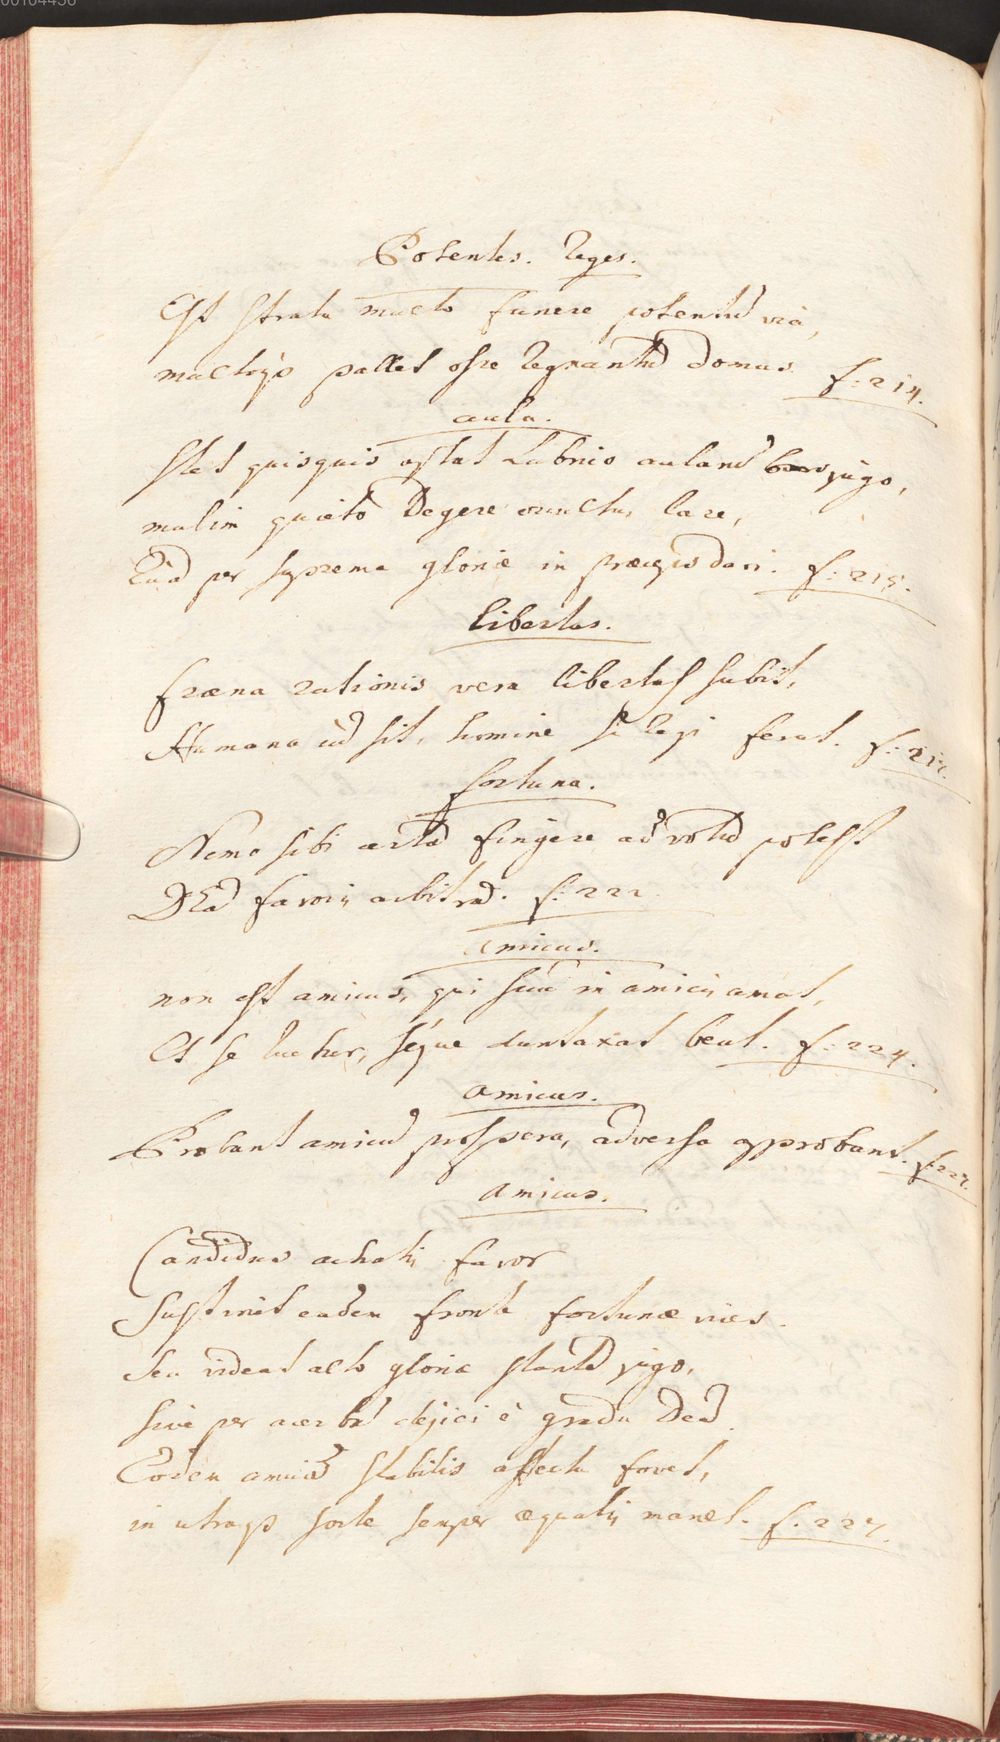 00104436
Potentes. Reges.
Est strata multo funere potentũ via,
multoq̃ pallet ossĩe regnantũ domus. f: 214.
aula.
Stet quisquis optat lubrico aulanũ jugo,
malim quieto Degere cunctus lare,
Quã per suprema gloriæ in præceps dari. f: 215.
libertas.
fræna rationis vera libertas subit,
Humana ũd sit, homine si legi ferat. f: 217.
fortuna.
Nemo sibi certã fingere ad votũ potest
DEã favoris arbitrã. f: 222
amicus.
non est amicus, qui suũ in amicis amat,
Et se tuetur, seque duntaxat beat. f: 224.
amicus.
Probant amicũ prospera, adversa approbant. f: 227.
amicus.
Candidus achatis favor
Sustinet eadem fronte fortunæ vices.
Seu videat alto gloriæ stantẽ jugo,
sive per acerbũ dejici è gradu Deã
Eodem amicũ stabilis affectu fovet,
in utraq̃ sorte semper æqualis manet. f. 227.